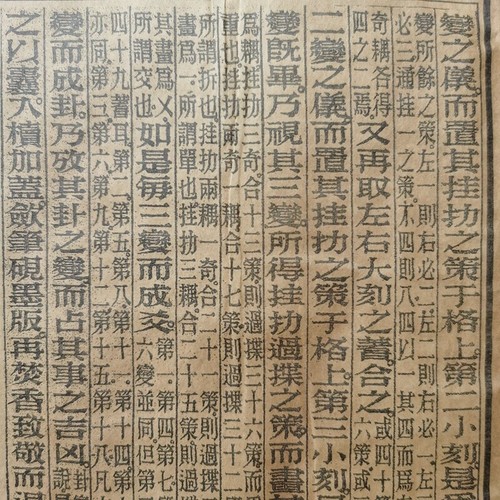 變之儀。而置其挂扐之策于格上第二小刻。是
變所餘之策。左一則右必二。左二則右必一。左
必三。通挂一之策。不四則八。四以一其四而爲
奇耦各得
四之二焉。
又再取左右大刻之蓍合之。
或四十
六策或
二變之儀。而置其挂扐之策于格上第三小刻
變既畢。乃視其三變。所得挂扐過揲之策。而畫
爲耦。挂扐三奇。合十三策。則過揲三十六策而
重也。挂扐兩奇一耦。合十七策。則過揲三十二
所謂折也。挂扐兩耦一奇。合二十一策。則過揲
畫爲一。所謂單也。挂扐三耦。合二十五策。則過揲
其畫爲乂。
所謂交也。
如是每三變而成爻。
第一。第四。第七
六變並同。但第
四十九蓍耳。第二。第五。第八。第十一。第十四。第
亦同。第三。第六。第九。第十二。第十五。第十八。凡七
變而成卦。乃攷其卦之變。而占其事之吉凶。
卦
說
之以囊。入櫝加蓋。歛筆硯墨版。再焚香致敬而退